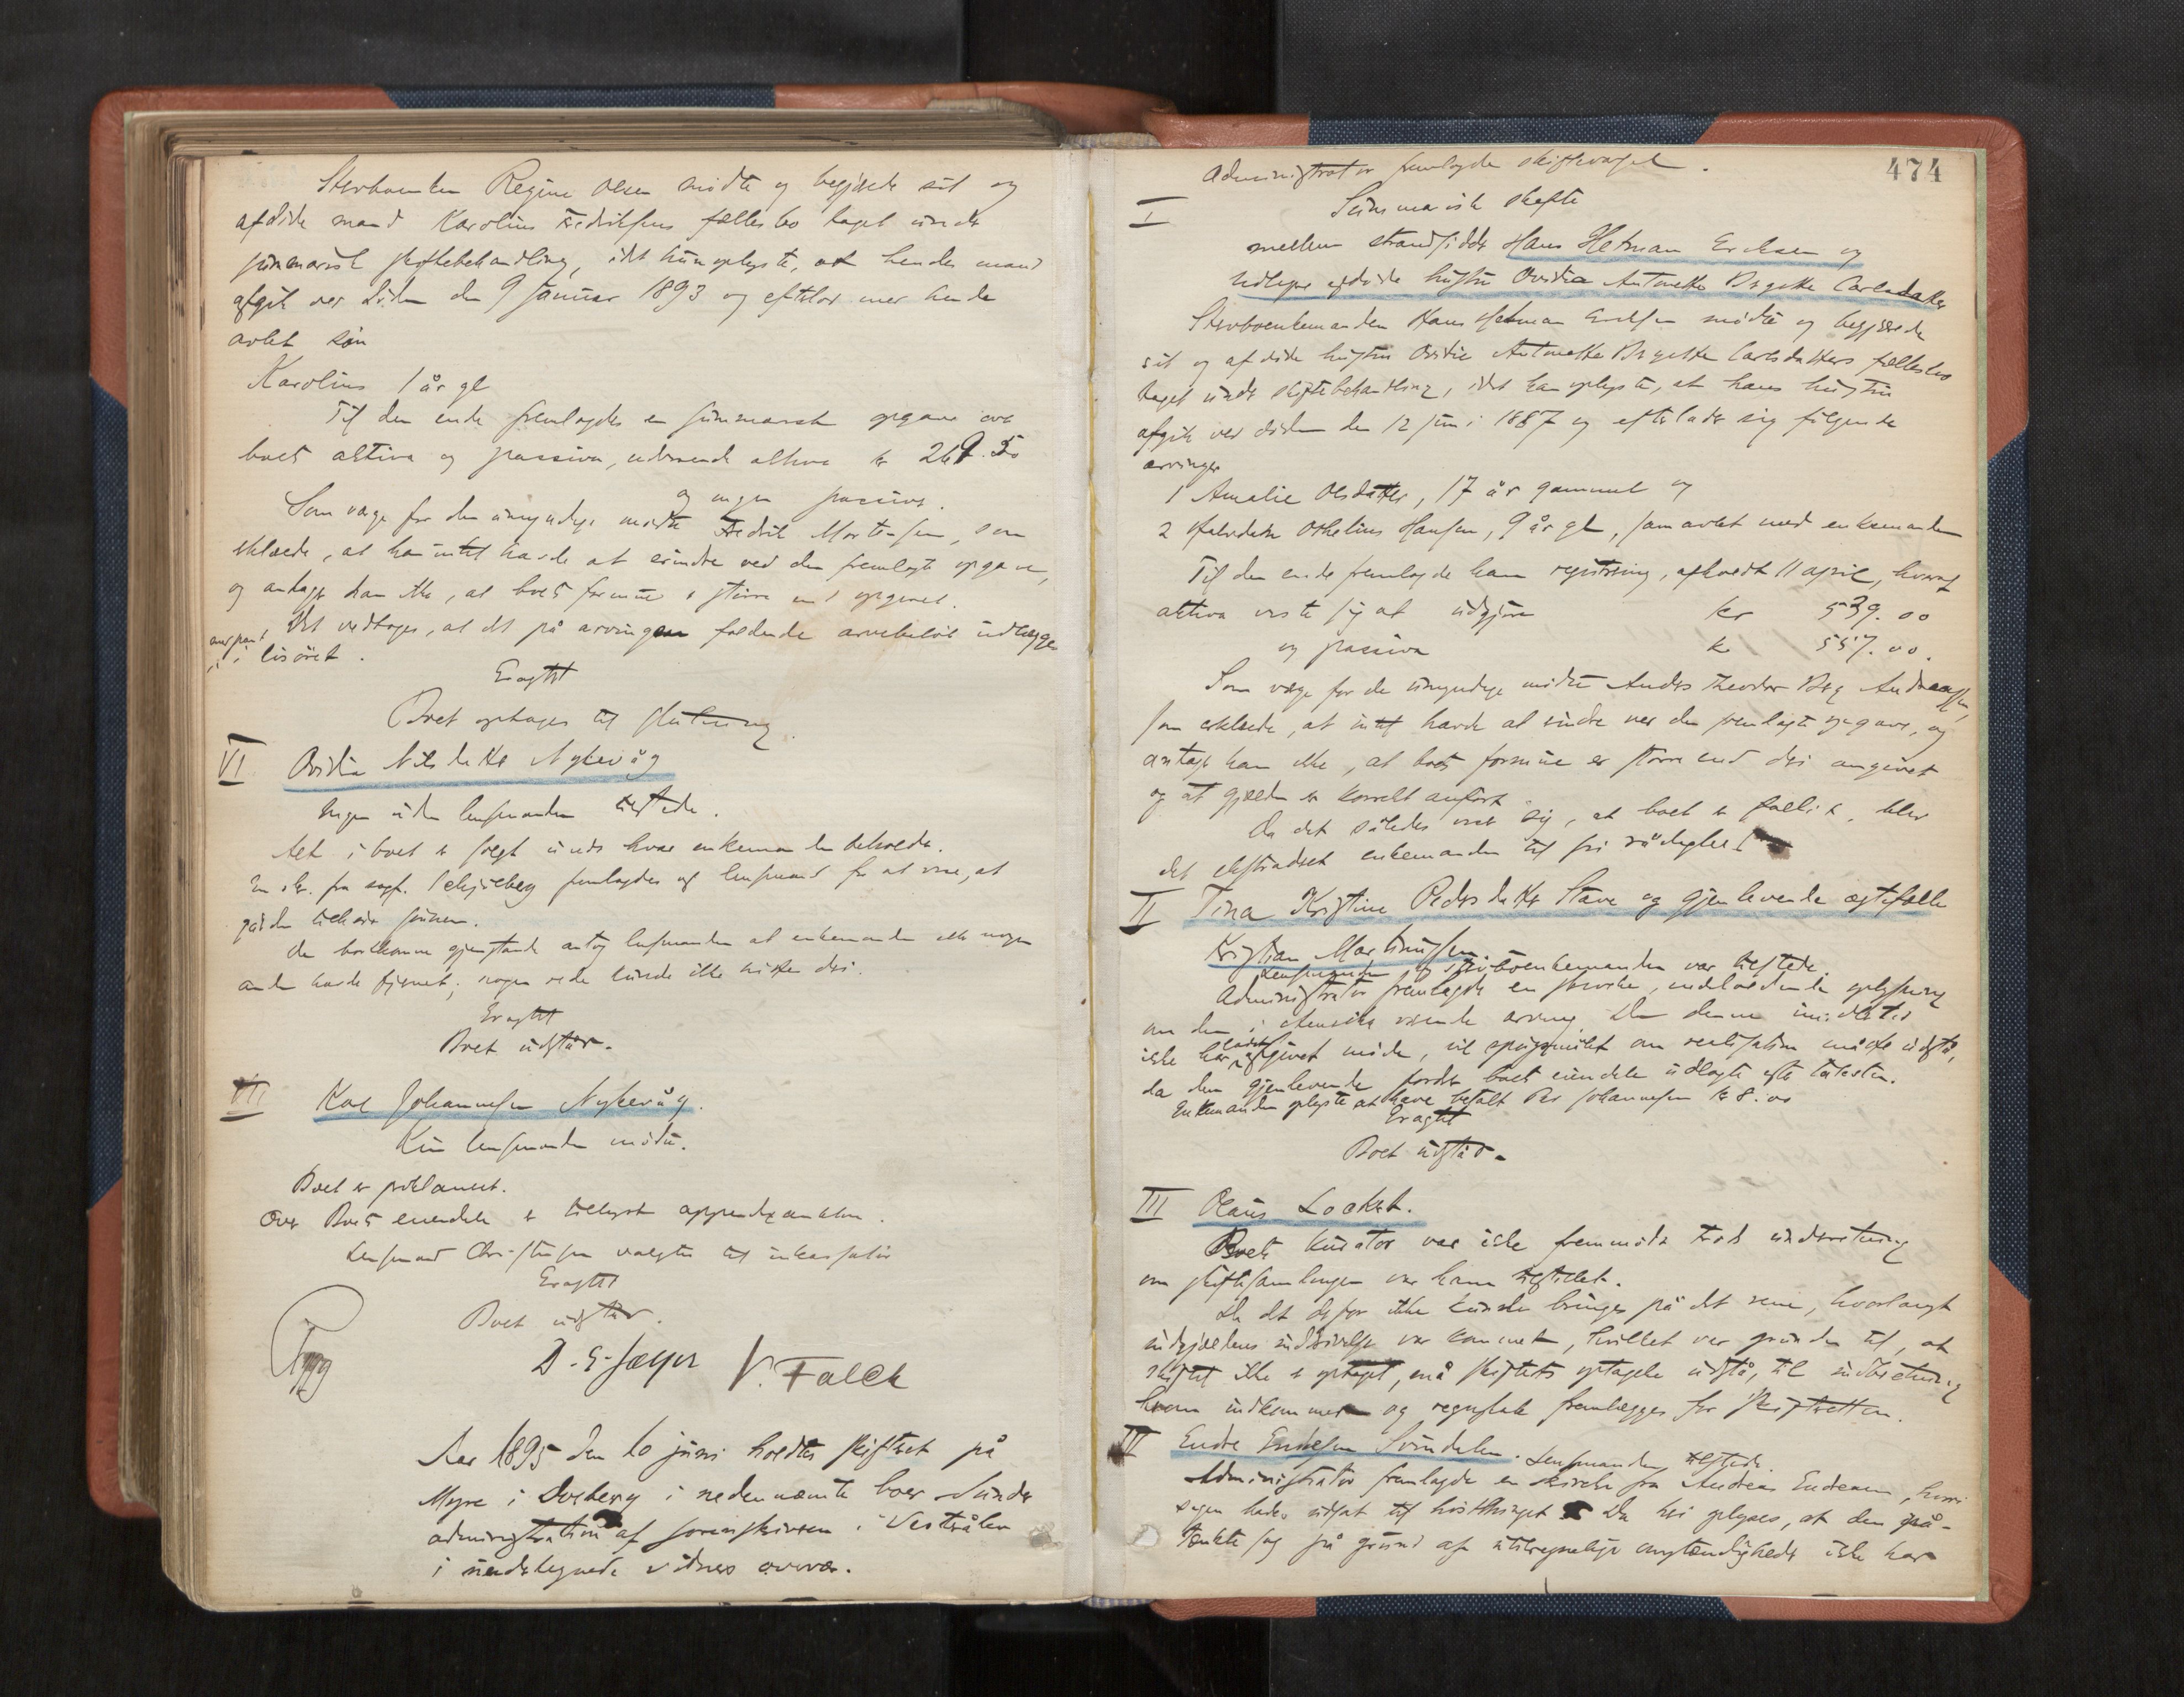 Sterboenken Regine Olsen mødte og begjærede sit og
afdøde mand Karolius Fredriksens fællesbo taget under
summarisk skiftebehandling, idet hun oplyste, at hendes mand
afgik ved døden den 9 januar 1893 og efterlod med hende
avlet søn
Karolius 1 år gl
Til den ende fremlagdes en summarisk opgave over
boets aktiva og passiva, udvisende aktiva kr 269.50
og ingen passiva.
Som værge for den umyndige mødte Fredrik Mortensen, som
erklærede, at han intet havde at erindre ved den fremlagte opgave,
og antager han ikke, at boets formue er større end opgivet.
Det vedtoges, at det på arvingen faldende arvebeløb udlægges
mod pant
i løsøret.
Eragtet
Boet optages til slutning.
VI Ovidia Nilsdatter Nykevåg
Ingen uden lensmanden tilstede.
Alt i boet er solgt undt hvad enkemanden beholdt.
En skr. fra sagf. Schjelberg fremlagdes af lensmand for at vise, at
gården tilhører sønnen.
De bortkomne gjenstande antog lensmanden at enkemanden eller nogen
anden havde fjernet; nogen rede kunde ikke skaffes deri.
Eragtet
Boet udstår.
VII Kol Johannesen Nykevåg.
Kun lensmanden mødte.
Boet er proklameret.
Over Boets eiendele er tillyst
Lensmand Christensen valgtes til inkassator
Eragtet
Boet udstår.
D. G. Jæger V. Falck
Aar 1895 den 10 juni holdtes skifteret på
Myre i Dverberg i nedennævnte boer under
administration af sorenskriveren i Vesterålen
i undertegnede vidners overvær.
474
Administrator fremlagde skiftevarsel.
I Summarisk skifte
mellem strandsidder Hans Hetman Eriksen og
afdøde hustru Ovidia Antonette Birgitte Carlsdatter
Sterboenkemanden Hans Hetman Eriksen mødte og begjærede
sit og afdøde hustru Ovidie Antonette Birgitte Carlsdatters fællesbo
taget under skiftebehandling, idet han oplyste, at hans hustru
afgik ved døden den 12 juni 1887 og efterlader sig følgende
arvinger
1 Amalie Olsdatter, 17 år gammel og
2 Othelius Hansen, 9 år gl, som avlet med enkemanden
Til den ende fremlagde han registrering, afholdt 11 april, hvoraf
aktiva viste sig at udgjøre kr 539.00
og passiva kr 557.00.
Som værge for de umyndige mødte Anders Theodor Berg Andreassen,
som erklærede, at intet havde at erindre ved den fremlagte opgave, og
antager han ikke, at boets formue er større end deri angivet
og at gjælden er korrekt anført.
Da det således viste sig, at boet er fallit, blev
det ekstraderet enkemanden til fri rådighed.
II Tina Kristine Pedersdatter Stave og gjenlevende ægtefælle
Kristian Martinussen.
Lensmanden og sterboenkemanden var tilstede.
Administrator fremlagde en skrivelse, indeholdende oplysning
om den i Amerika værende arving. Da denne imidlertid
ikke har ladet afgivet møde, vil spørgsmålet om realisation måtte udstå,
da den gjenlevende fordrer boets eiendele udlagte efter taksten.
Enkemanden oplyste at have betalt Per Johannesen kr 8.00
Eragtet
Boet udstår.
III Olaus Lockert.
Boets kurator var ikke fremmødt trods underretning
om skiftesamlingen var ham tilstillet.
Da det derfor ikke kunde bringes på det rene, hvorlangt
indgjældens inddrivelse var kommet, hvilket var grunden til, at
skiftet ikke er optaget, må skiftets optagelse udstå, til indberetning
herom indkommer og regnskab fremlægges for skifteretten.
IV Endre Endresen Svindalen. Lensmanden tilstede.
Administrator fremlagde en skrivelse fra Andreas Endresen, hvori
sagen bades udsat til høstthinget Da her oplyses, at den på-
tænkte sag på grund af utilregnelige omstændigheder ikke har